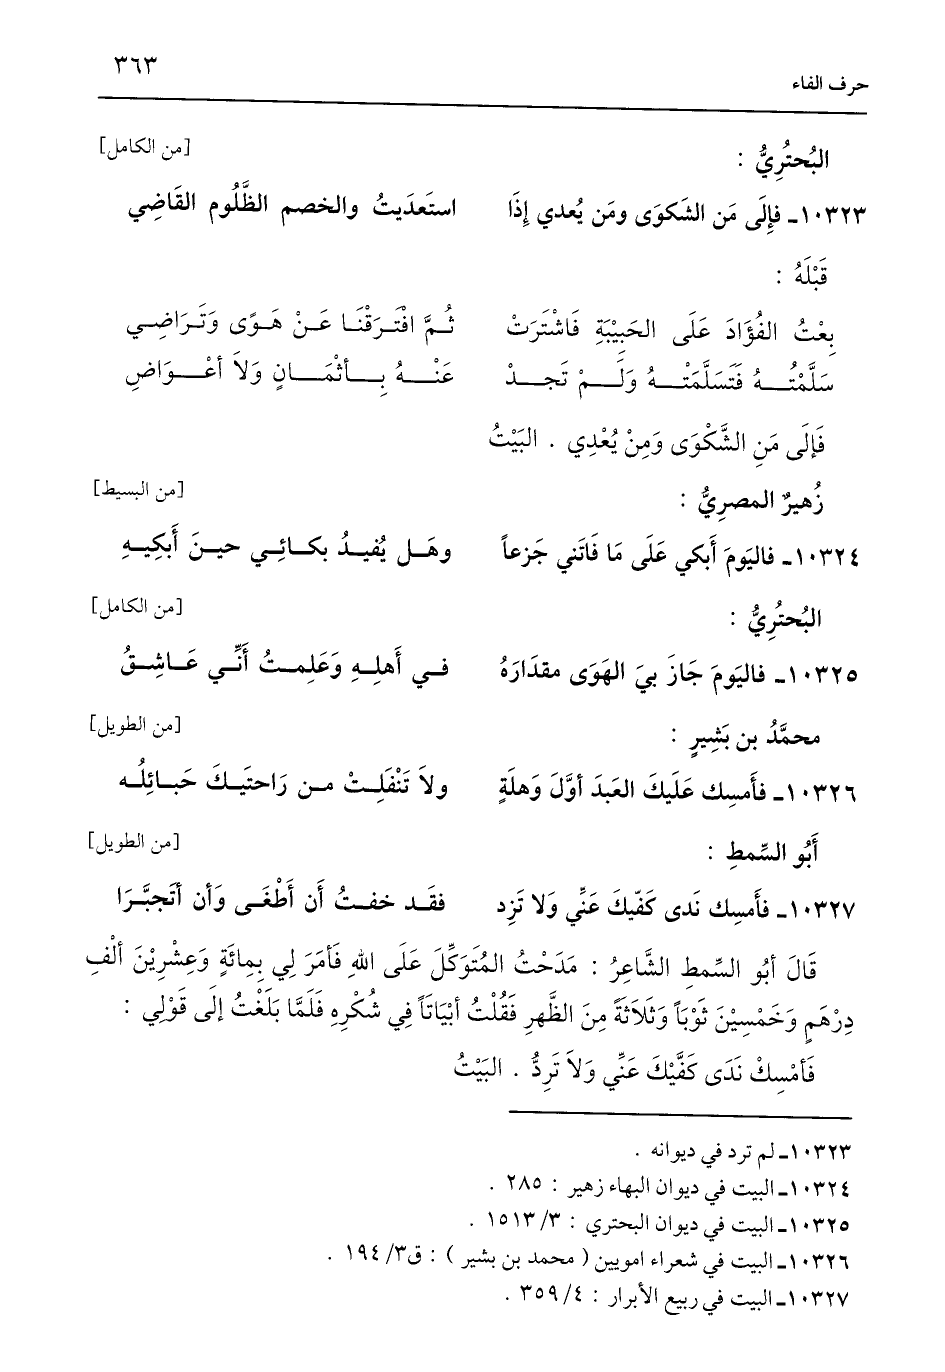 ٣٦٣
حرف الفاء
البُحتُرِيُّ : [من الكامل]
١٠٣٢٣ـ فإِلَى مَن الشَكوَى ومَن يُعدي إِذَا استَعدَيتُ والخصم الظَّلُوم القَاضِي
قَبْلَهُ :
بِعْتُ الفُؤَادَ عَلَى الحَبِيْبَةِ فَاشْتَرَتْ ثُمَّ افْتَرَقْنَا عَنْ هَوًى وَتَرَاضِي
سَلَّمْتُهُ فَتَسَلَّمَتْهُ وَلَمْ تَجِدْ عَنْهُ بِأثْمَانٍ وَلاَ أعْوَاضِ
فَإلَى مَنِ الشَّكْوَى وَمِنْ يُعْدِي . البَيْتُ
زُهيرٌ المصرِيُّ : [من البسيط]
١٠٣٢٤ـ فاليَومَ أَبكي عَلَى مَا فَاتَني جَزعاً وهَل يُفيدُ بكائِي حينَ أَبكِيهِ
البُحتُرِيُّ : [من الكامل]
١٠٣٢٥ـ فاليَومَ جَازَ بيَ الهَوَى مقدَارَهُ في أَهلِهِ وَعَلِمتُ أَنِّي عَاشِقُ
محمَّدُ بن بَشِيرٍ : [من الطويل]
١٠٣٢٦ـ فأَمسِك عَلَيكَ العَبدَ أوَّلَ وَهلَةٍ ولاَ تَنْفَلِتْ من رَاحتَيكَ حَبائِلُه
أَبُو السِّمطِ : [من الطويل]
١٠٣٢٧ـ فأَمسِك نَدى كَفّيكَ عَنِّي وَلا تَزِد فقَد خفتُ أَن أَطْغَى وَأن أتَجبَّرَا
قَالَ أبُو السِّمطِ الشَّاعِرُ : مَدَحْتُ المُتَوَكِّلَ عَلَى اللهِ فَأمَرَ لِي بِمِائَةٍ وَعِشْرِيْنَ ألْفِ
دِرْهَمٍ وَخَمْسِيْنَ ثَوْبَاً وَثَلَاثَةً مِنَ الظَّهرِ فَقُلْتُ أبْيَاتَاً فِي شُكْرِهِ فَلَمَّا بَلَغْتُ إلَى قَوْلِي :
فَأمْسِكْ نَدَى كَفَّيْكَ عَنِّي وَلاَ تَرِدُّ . البَيْتُ
١٠٣٢٣ـ لم ترد في ديوانه .
١٠٣٢٤ـ البيت في ديوان البهاء زهير : ٢٨٥ .
١٠٣٢٥ـ البيت في ديوان البحتري : ٣/ ١٥١٣ .
١٠٣٢٦ـ البيت في شعراء امويين ( محمد بن بشير ) : ق٣/ ١٩٤ .
١٠٣٢٧ـ البيت في ربيع الأبرار : ٤/ ٣٥٩ .